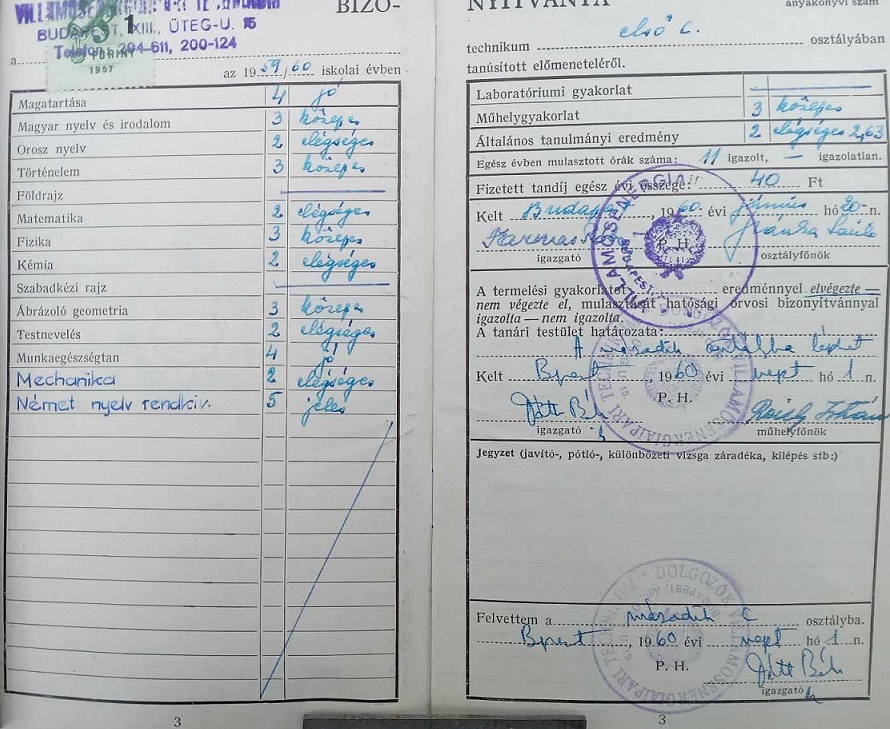 BIZO-
BUDAPEST, XIII., ÜTEG-U. 15
Telefon: 294-611, 200-124
1
FORINT
1957
a
az 1959/60 iskolai évben
Magatartása 4 jó
Magyar nyelv és irodalom 3 közepes
Orosz nyelv 2 elégséges
Történelem 3 közepes
Földrajz
Matematika 2 elégséges
Fizika 3 közepes
Kémia 2 elégséges
Szabadkézi rajz
Ábrázoló geometria 3 közepes
Testnevelés 2 elégséges
Munkaegészségtan 4 jó
Mechanika 2 elégséges
Német nyelv rendkív. 5 jeles
3
NYITVÁNYA
anyakönyvi szám
technikum első C. osztályában
tanúsított előmeneteléről.
Laboratóriumi gyakorlat
Műhelygyakorlat 3 közepes
Általános tanulmányi eredmény 2 elégséges 2,63
Egész évben mulasztott órák száma: 11 igazolt, — igazolatlan.
Fizetett tandíj egész évi összege: 40 Ft
Kelt Budapest, 1960 évi június hó 20-n.
P. H.
igazgató osztályfőnök
A termelési gyakorlatot eredménnyel elvégezte —
nem végezte el, mulasztását hatósági orvosi bizonyítvánnyal
igazolta — nem igazolta.
A tanári testület határozata:
A második osztályba léphet
Kelt Bpest, 1960 évi szept hó 1 n.
P. H.
igazgató műhelyfőnök
Jegyzet (javító-, pótló-, különbözeti vizsga záradéka, kilépés stb:)
Felvettem a második C osztályba.
Bpest, 1960 évi szept hó 1 n.
P. H.
igazgató
3